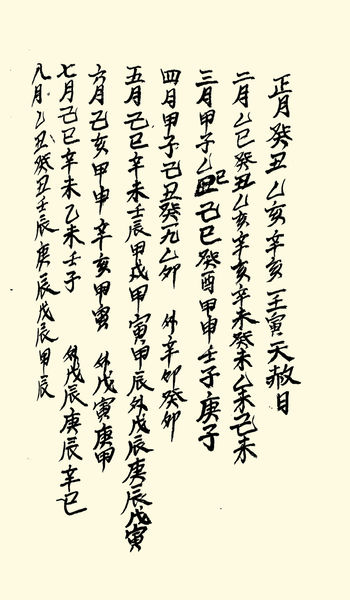 正月癸丑乙亥辛亥 壬寅天赦日
二月乙巳癸丑乙亥辛亥辛未癸未乙未己未
三月甲子乙丑己巳癸酉甲申壬子庚子
四月甲子己丑癸丑乙卯 外辛卯癸卯
五月己巳辛未壬辰甲戌甲寅甲辰外戊辰庚辰戊寅
六月己亥甲申辛亥甲寅 外戊寅庚申
七月己巳辛未乙未壬子 外戊辰庚辰辛巳
八月乙丑癸丑壬辰庚辰戊辰甲辰